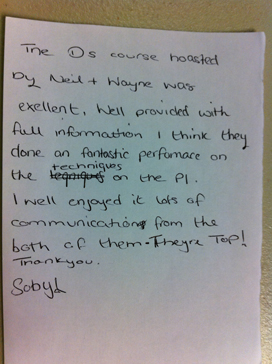 The Ds course hoasted
by Neil + Wayne was
exellent, Well provided with
full information I think they
done an fantastic perfomace on
the techniques on the P1.
I well enjoyed it lots of
communication from the
both of them. Theyre Top!
Thankyou.